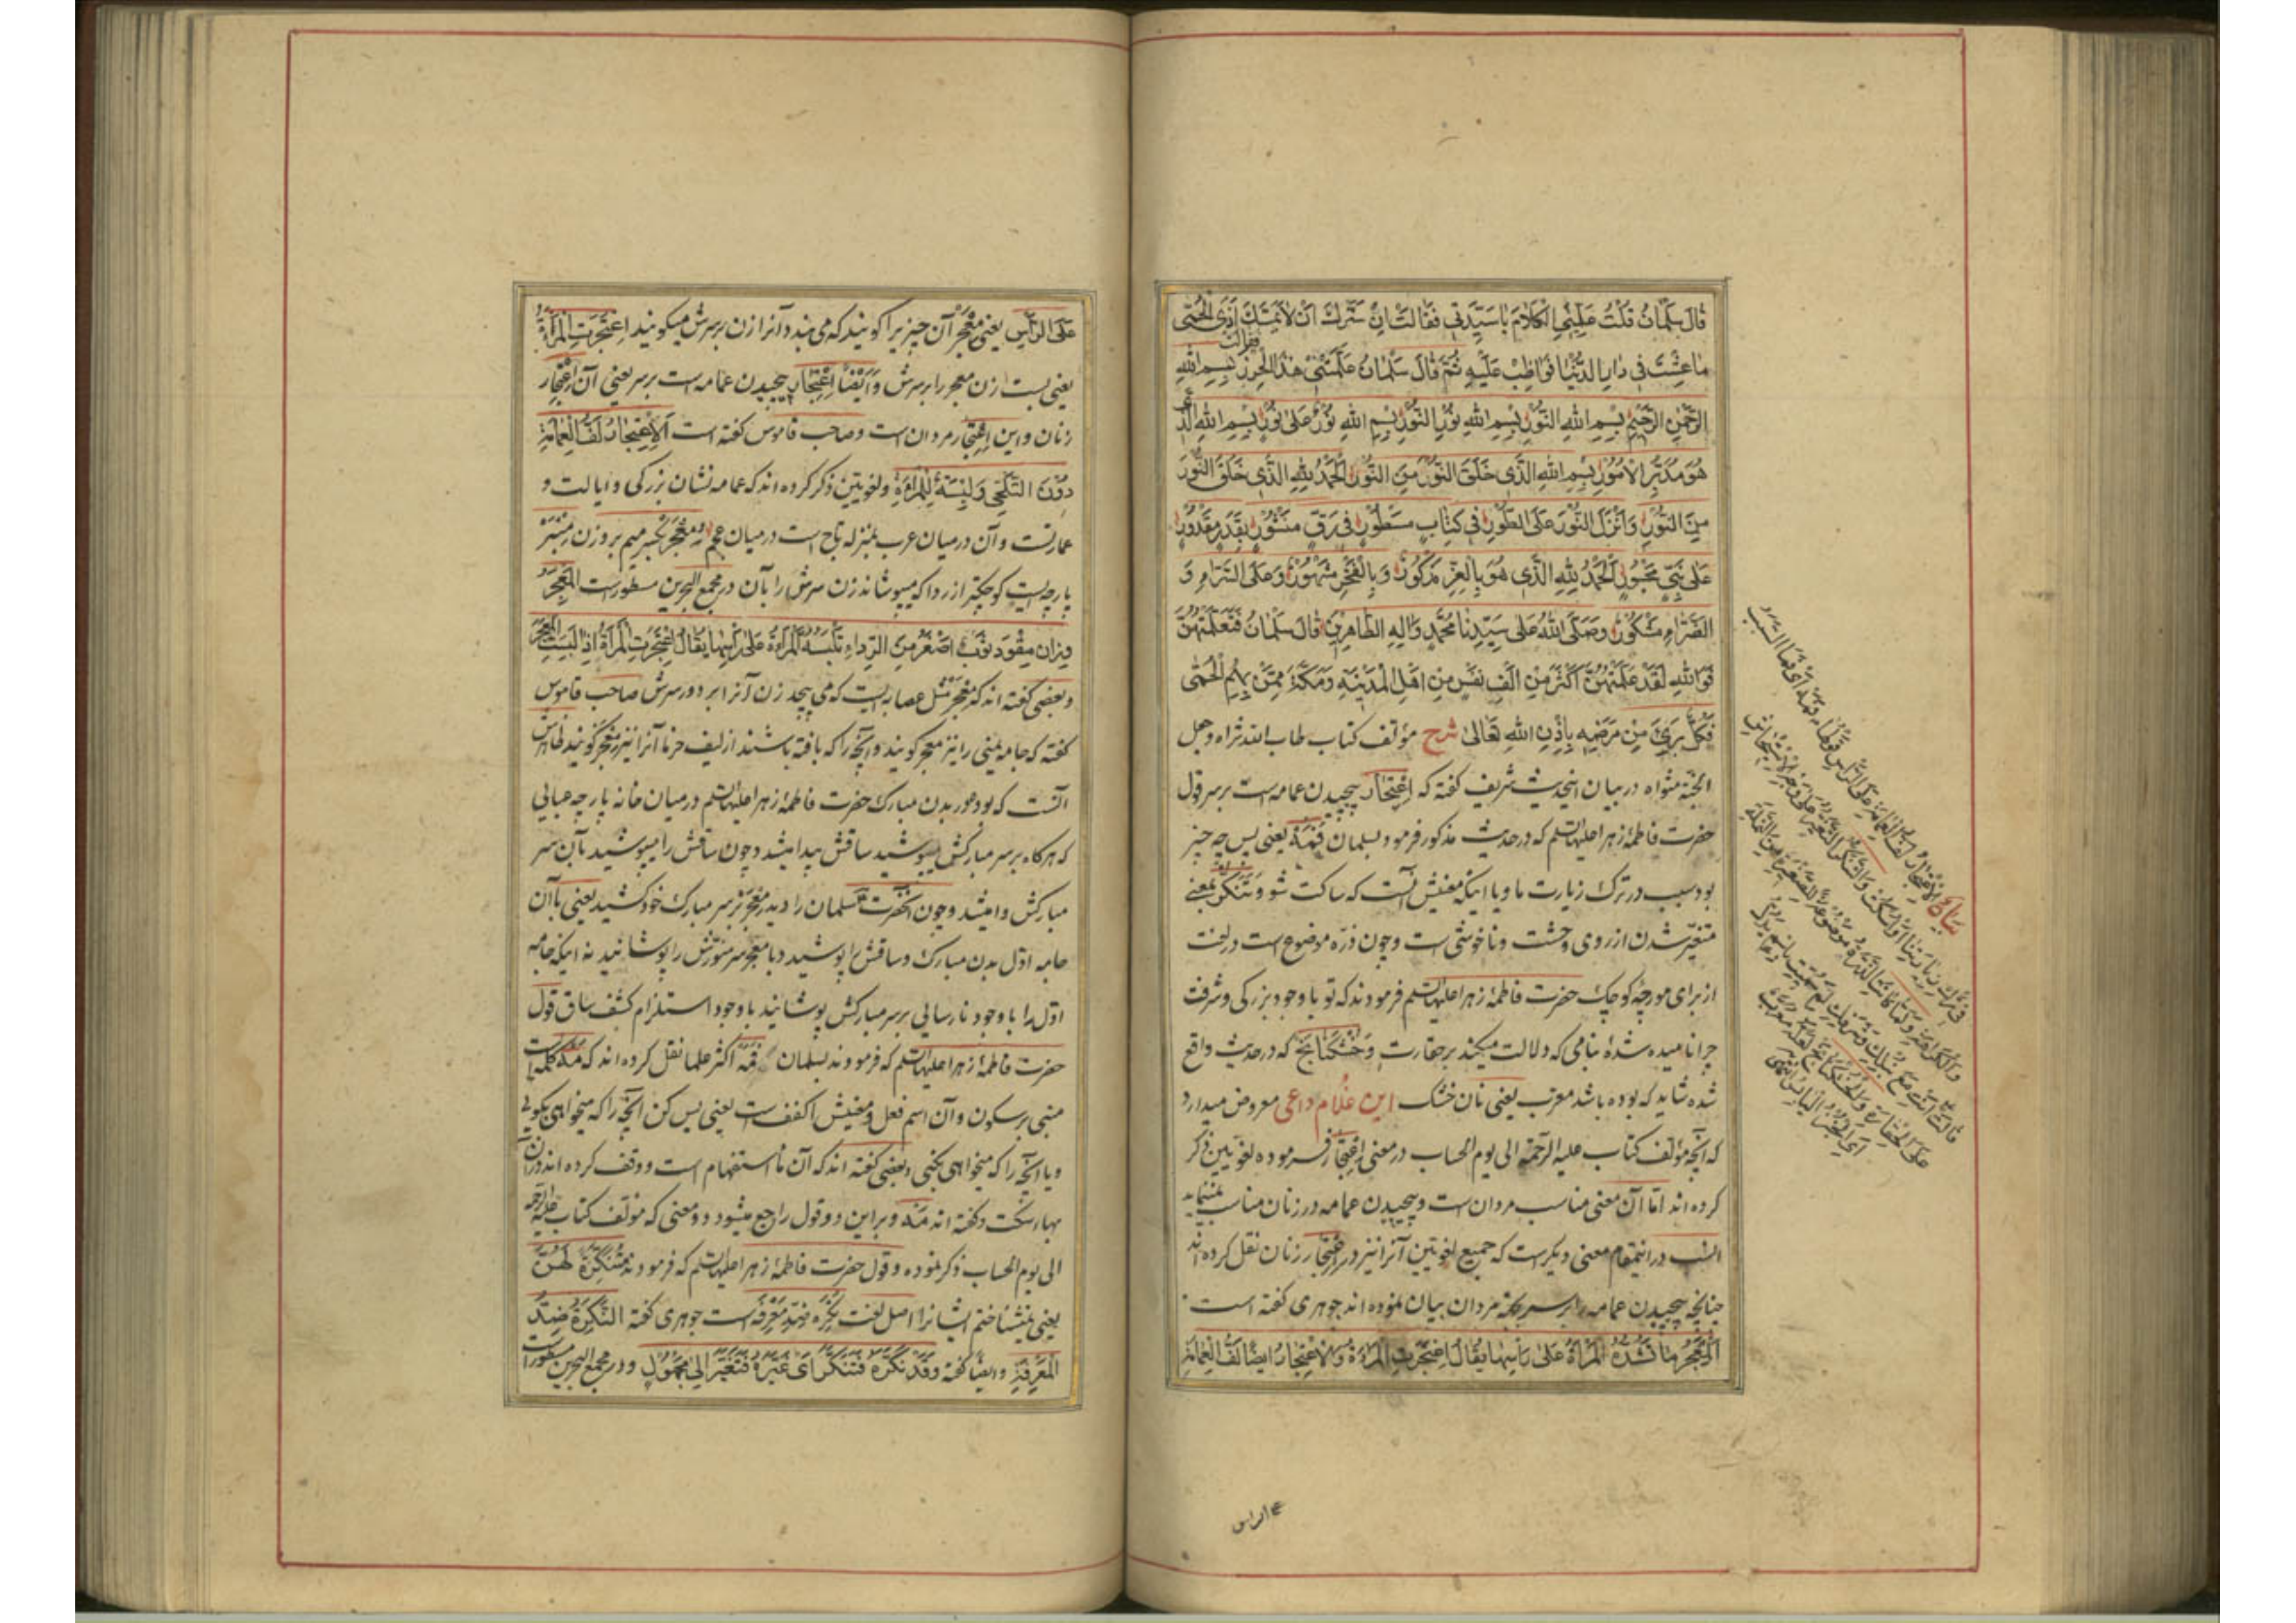 قَالَ سَلْمَانُ قُلْتُ عَلِّمِينِى الْكَلَامَ يَا سَيِّدَتِى فَقَالَتْ اِنْ سَرَّكَ اَنْ لَا يَمَسَّكَ اَذَى الْحُمّٰى
مَا عِشْتَ فِى دَارِ الدُّنْيَا فَوَاظِبْ عَلَيْهِ ثُمَّ قَالَ سَلْمَانُ عَلَّمَتْنِى هٰذَا الْحِرْزَ فقالت بِسْمِ اللهِ
الرَّحْمٰنِ الرَّحِيْمِ بِسْمِ اللهِ النُّوْرِ بِسْمِ اللهِ نُوْرِ النُّوْرِ بِسْمِ اللهِ نُوْرٌ عَلٰى نُوْرٍ بِسْمِ اللهِ الَّذِى
هُوَ مُدَبِّرُ الْاُمُوْرِ بِسْمِ اللهِ الَّذِى خَلَقَ النُّوْرَ مِنَ النُّوْرِ اَلْحَمْدُ لِلّٰهِ الَّذِى خَلَقَ النُّوْرَ
مِنَ النُّوْرِ وَاَنْزَلَ النُّوْرَ عَلَى الطُّوْرِ فِى كِتَابٍ مَسْطُوْرٍ فِى رَقٍّ مَنْشُوْرٍ بِقَدَرٍ مَقْدُوْرٍ
عَلٰى نَبِىٍّ مَحْبُوْرٍ اَلْحَمْدُ لِلّٰهِ الَّذِى هُوَ بِالْعِزِّ مَذْكُوْرٌ وَبِالْفَخْرِ مَشْهُوْرٌ وَعَلَى السَّرَّاءِ وَ
الضَّرَّاءِ مَشْكُوْرٌ وَصَلَّى اللهُ عَلٰى سَيِّدِنَا مُحَمَّدٍ وَاٰلِهِ الطَّاهِرِيْنَ قَالَ سَلْمَانُ فَتَعَلَّمْتُهُنَّ
فَوَاللهِ لَقَدْ عَلَّمْتُهُنَّ اَكْثَرَ مِنْ اَلْفِ نَفْسٍ مِنْ اَهْلِ الْمَدِيْنَةِ وَمَكَّةَ مِمَّنْ بِهِمُ الْحُمّٰى
فَكُلٌّ بَرِئَ مِنْ مَرَضِهِ بِاِذْنِ اللهِ تَعَالٰى شرح مؤلف كتاب طاب الله ثراه وجعل
الجنّة مثواه در بيان اينحديث شريف كفته كه اِعْتِجَار پيچيدن عمامه است برسر قول
حضرت فاطمهٔ زهرا عليها السّلم كه درحديث مذكور فرمود بسلمان فَمَهْ يعنى پس چه چيز
بود سبب در ترك زيارت ما و يا اينكه معنيش آنست كه ساكت شو و تَنَكُّر بمعنى
متغيّر شدن از روى وحشت و ناخوشى است و چون ذرّه موضوع است در لغت
از براى مورچهٔ كوچك حضرت فاطمهٔ زهرا عليها السّلم فرمودند كه تو با وجود بزركى و شرفت
چرا ناميده شدهٔ بنامى كه دلالت ميكند بر حقارت وَخُشْكَنَانَج كه در حديث واقع
شده شايد كه بوده باشد معرب يعنى نان خشك اين غلام داعى معروض ميدارد
كه آنچه مؤلف كتاب عليه الرّحمة الى يوم الحساب در معنى اِعْتِجَار فرموده لغويّين ذكر
كرده اند امّا آن معنى مناسب مردان است و پيچيدن عمامه در زنان مناسب نمينمايد
انسب در اينمقام معنى ديكر است كه جميع لغويّين آنرا نيز در اِعْتِجَار زنان نقل كرده اند
چنانچه پيچيدن عمامه را برسر بجهة مردان بيان نموده اند جوهرى كفته است
اَلْمِعْجَرُ مَا تَشُدُّهُ الْمَرْاَةُ عَلٰى رَاْسِهَا يُقَالُ اِعْتَجَرَتِ الْمَرْاَةُ وَالْاِعْتِجَارُ اَيْضًا لَفُّ الْعِمَامَةِ
على الراس
عَلَى الرَّاْسِ يعنى مِعْجَر آن چيزيرا كويند كه مى بندد آنرا زن برسرش ميكويند اِعْتَجَرَتِ الْمَرْاَةُ
يعنى بست زن معجر را برسرش وَاَيْضًا اِعْتِجَار پيچيدن عمامه است برسر يعنى آن اِعْتِجَار
زنان و اين اِعْتِجَار مردان است و صاحب قاموس كفته است اَلْاِعْتِجَارُ لَفُّ الْعِمَامَةِ
دُوْنَ التَّلَحِّى وَلِبْسَةٌ لِلْمَرْاَةِ و لغويّين ذكر كرده اند كه عمامه نشان بزركى و ايالت و
عمارتست و آن در ميان عرب بمنزله تاج است در ميان عجم و مِعْجَر بكسر ميم بر وزن مِنْبَر
پارچه ايست كوچكتر از ردا كه ميپوشاند زن سرش را بآن در مجمع البحرين مسطور است اَلْمِعْجَرُ
وِزَان مِقْوَد ثَوْبٌ اَصْغَرُ مِنَ الرِّدَاءِ تَلْبَسُهُ الْمَرْاَةُ عَلٰى رَاْسِهَا يُقَالُ اِعْتَجَرَتِ الْمَرْاَةُ اِذَا لَبِسَتِ الْمِعْجَرَ
و بعضى كفته اند كه مِعْجَر مثل عصابه ايست كه مى پيچد زن آنرا بر دور سرش صاحب قاموس
كفته كه جامه يمنى را نيز معجر كويند و آنچه را كه بافته باشند از ليف خرما آنرا نيز معجر كويند ظاهرش
آنست كه بود در بدن مبارك حضرت فاطمهٔ زهرا عليها السّلم در ميان خانه پارچه عبايى
كه هركاه برسر مباركش ميپوشيد ساقش پيدا ميشد و چون ساقش را ميپوشيد بآن سر
مباركش وا ميشد و چون آنحضرت سلمان را ديد معجر برسر مبارك خود كشيد يعنى با آن
جامه اوّل بدن مبارك و ساقش را پوشيد و با معجر سر منوّرش را پوشانيد نه اينكه جامه
اوّل را با وجود نارسايى برسر مباركش پوشانيد با وجود استلزام كشف ساق قول
حضرت فاطمهٔ زهرا عليها السّلم كه فرمودند بسلمان فَمَهْ اكثر علما نقل كرده اند كه مَهْ كلمه است
مبنى بر سكون و آن اسم فعل و معنيش اكفف است يعنى بس كن آنچه را كه ميخواهى بكويى
و يا آنچه را كه ميخواهى بكنى و بعضى كفته اند كه آن مَا استفهام است و وقف كرده اند در آن
بهاء سكت و كفته اند مَهْ و بر اين دو قول راجع ميشود دو معنى كه مؤلف كتاب عليه الرحمه
الى يوم الحساب ذكر نموده و قول حضرت فاطمهٔ زهرا عليها السّلم كه فرمودند مُتَنَكِّرَةً لَهُنَّ
يعنى نميشناختم ايشانرا اصل لغت نَكِرَه ضِدّ مَعْرِفَه است جوهرى كفته اَلنَّكِرَةُ ضِدُّ
الْمَعْرِفَةِ و ايضًا كفته وَقَدْ نَكَّرَهُ فَتَنَكَّرَ اَىْ غَيَّرَهُ فَتَغَيَّرَ اِلٰى مَجْهُوْلٍ و در مجمع البحرين مسطور است